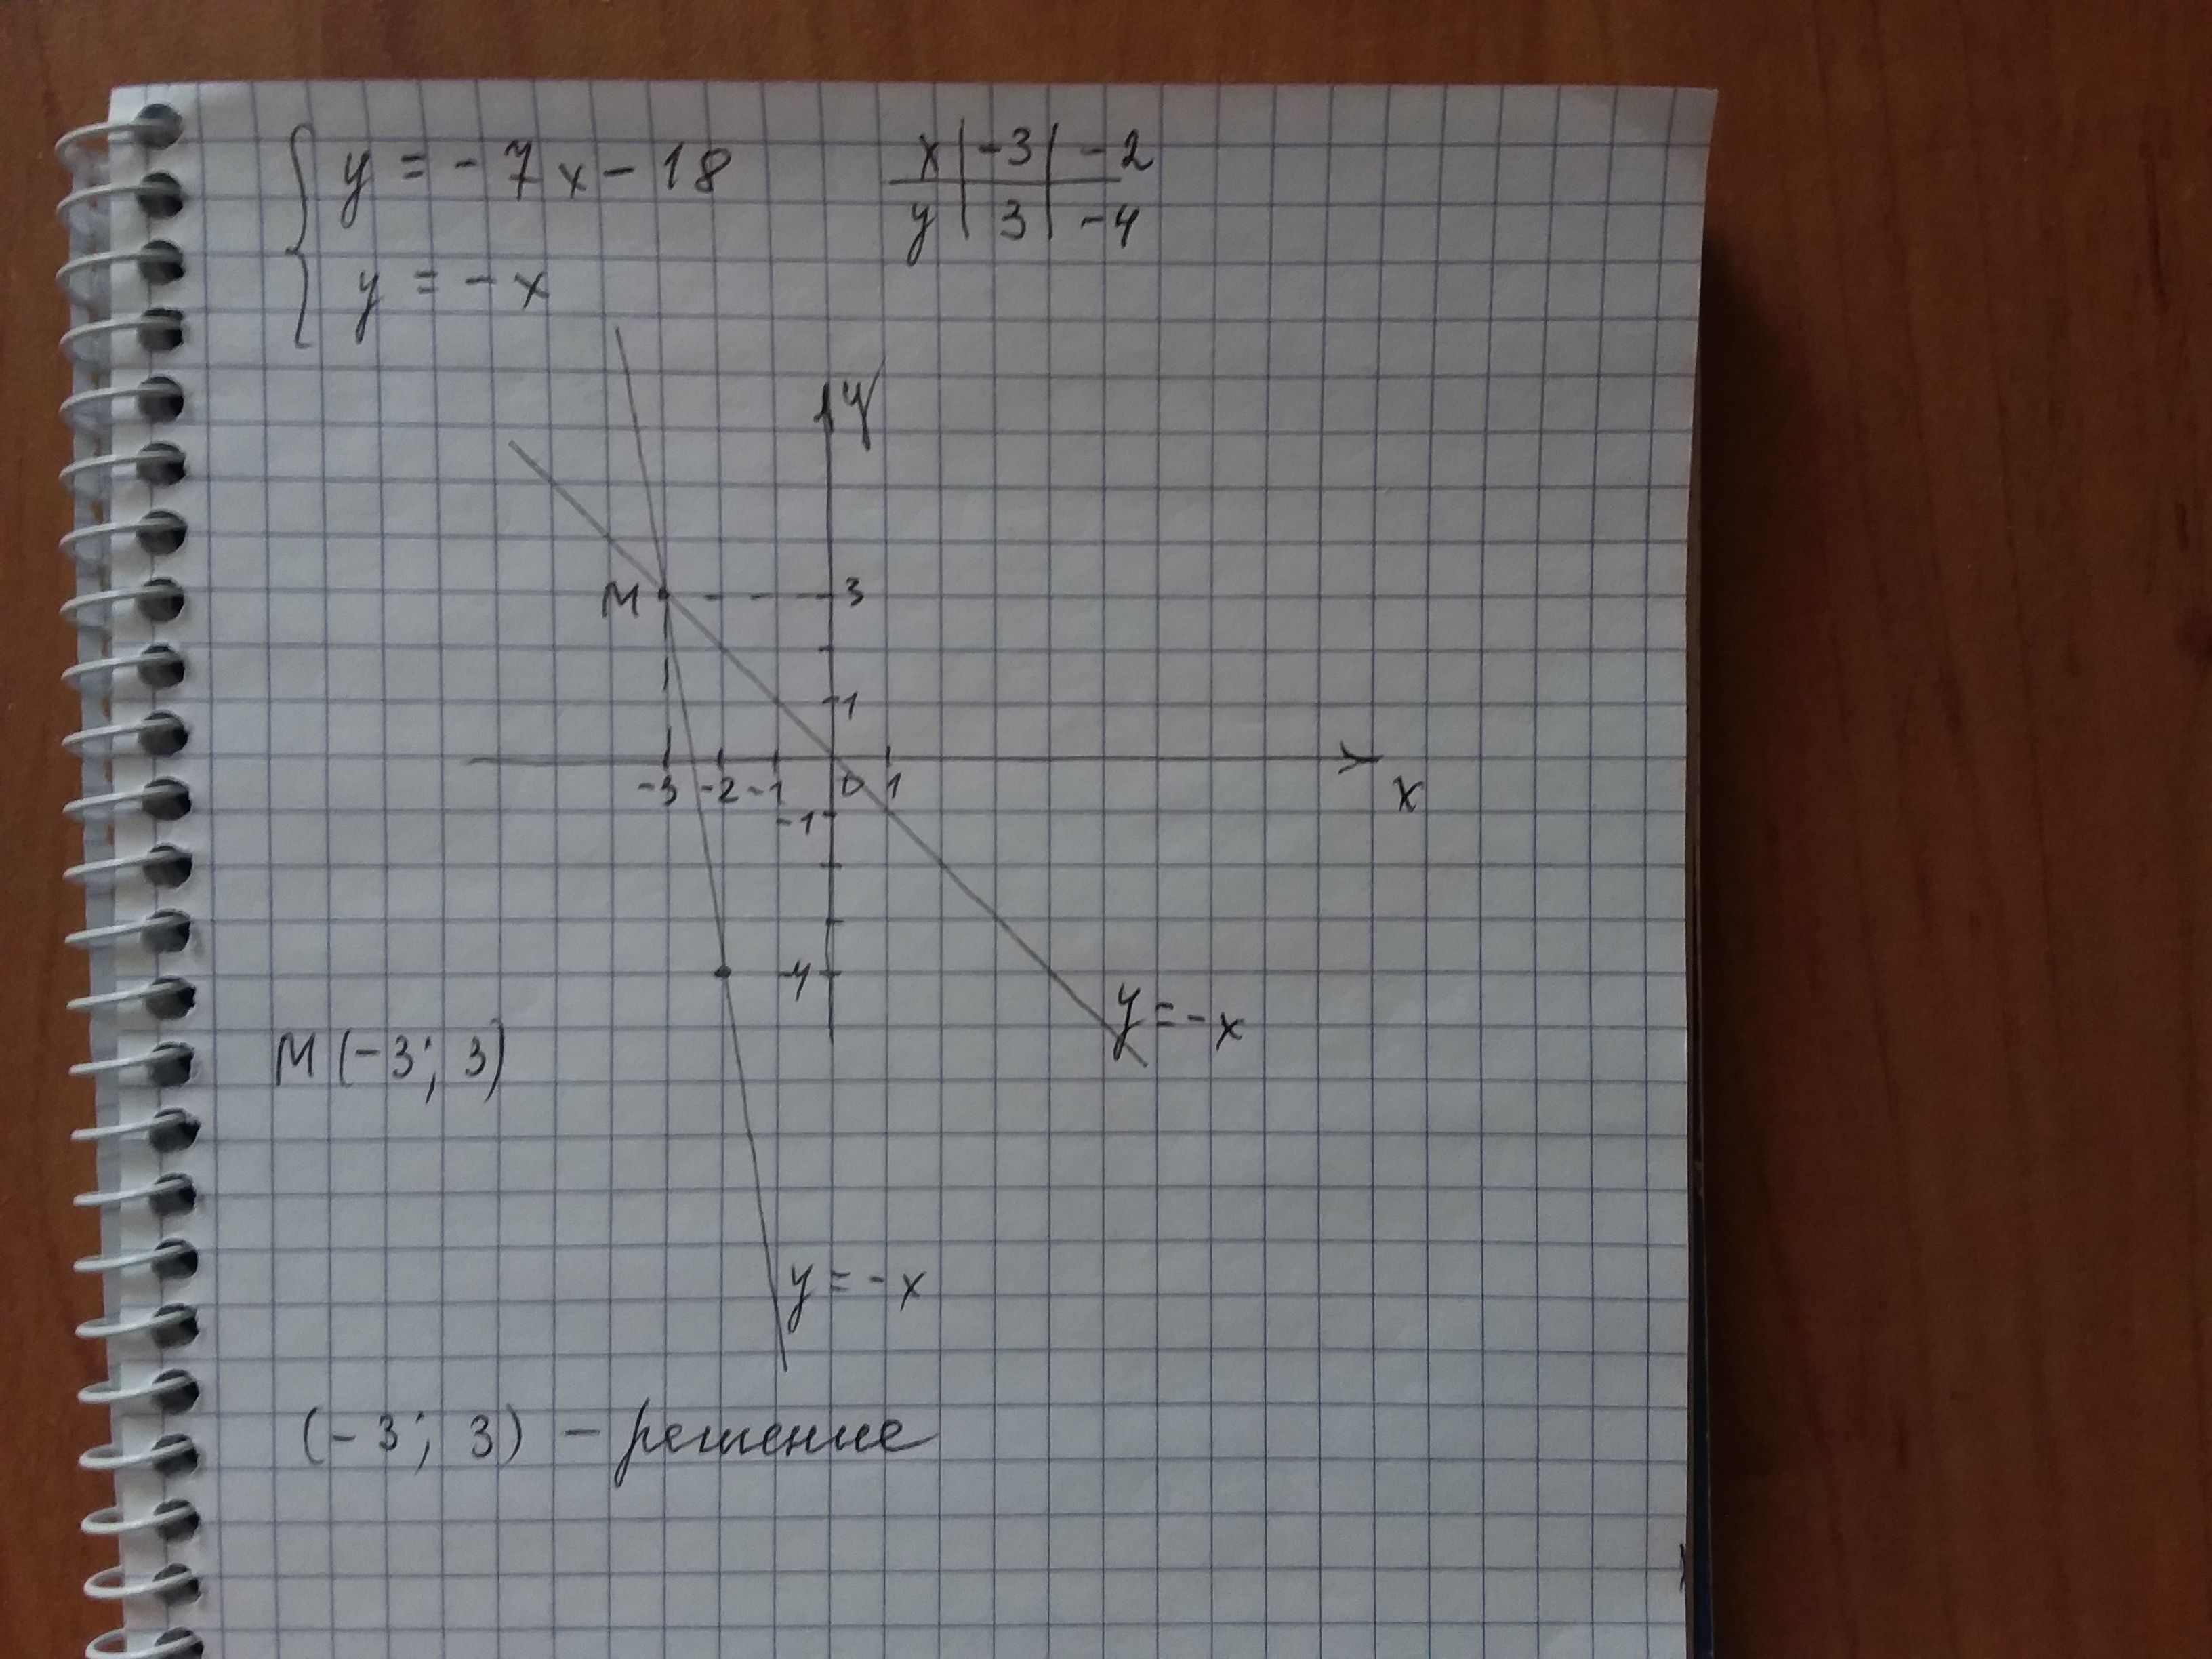 y = -7x - 18
x | -3 | -2
y | 3 | -4
y = -x
y
M
3
1
-3 -2 -1 0 1
x
-1
-4
y = -x
M (-3; 3)
y = -x
(-3; 3) - решение